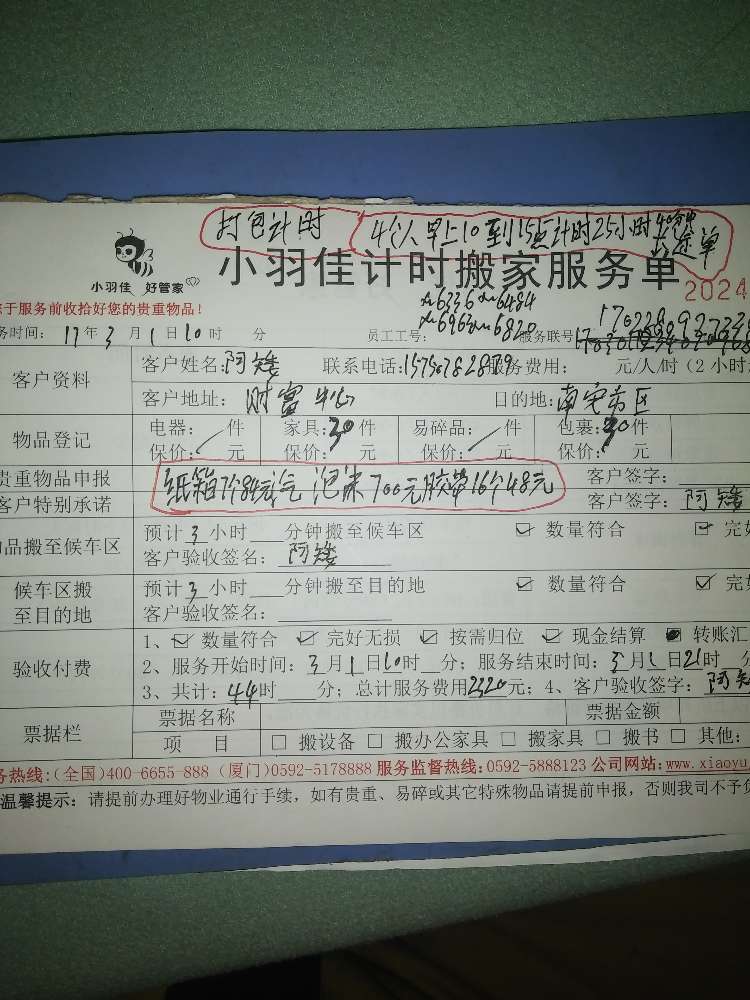 打包计时 4个人早上10到15点计时25小时40分钟
长途单
小羽佳 好管家
小羽佳计时搬家服务单
2024
您于服务前收拾好您的贵重物品！
务时间：17年3月1日10时 分 员工工号： 6336 6484 6963 6820 服务联号
客户资料 客户姓名： 联系电话： 服务费用： 元/人/时（2小时
客户地址：财富中心 目的地：南安市区
物品登记 电器：／件 家具：30件 易碎品：／件 包裹：30件
保价： 元 保价： 元 保价： 元 保价： 元
贵重物品申报 客户签字：
纸箱 泡沫700元胶带16个48元
客户特别承诺 客户签字：
品搬至候车区 预计3小时 分钟搬至候车区 ☑ 数量符合 ☑ 完好
客户验收签名：
候车区搬至目的地 预计3小时 分钟搬至目的地 ☑ 数量符合 ☑ 完好
客户验收签名：
验收付费 1、☑ 数量符合 ☑ 完好无损 ☑ 按需归位 ☑ 现金结算 转账汇
2、服务开始时间：3月1日10时 分；服务结束时间：3月1日21时 分
3、共计：44时 分；总计服务费用2320元；4、客户验收签字：
票据栏 票据名称 票据金额
项 目 □ 搬设备 □ 搬办公家具 □ 搬家具 □ 搬书 □ 其他：
务热线:(全国)400-6655-888 (厦门)0592-5178888 服务监督热线:0592-5888123 公司网站:www.xiaoyu
温馨提示：请提前办理好物业通行手续，如有贵重、易碎或其它特殊物品请提前申报，否则我司不予负